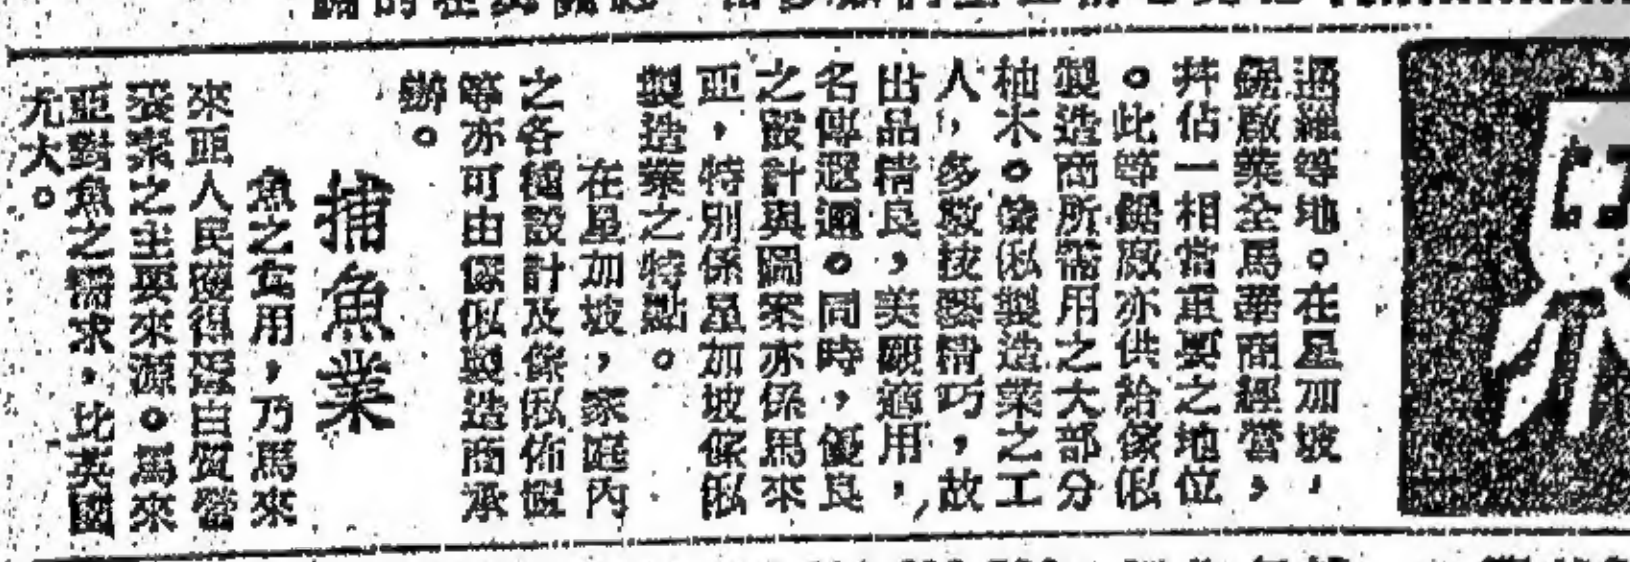 暹羅等地。在星加坡,
鋸廠業全為華商經營,
幷佔一相當重要之地位
。此等鋸廠亦供給傢俬
製造商所需用之大部分
柚木。傢俬製造業之工
人,多數技藝精巧,故
出品精良,美觀適用,
名傳遐邇。同時,優良
之設計與圖案亦係馬來
亞,特別係星加坡傢俬
製造業之特點。
在星加坡,家庭內
之各種設計及傢俬佈置
等亦可由傢俬製造商承
辦。
捕魚業
魚之食用,乃馬來
來亞人民獲得蛋白質營
養素之主要來源。馬來
亞對魚之需求,比英國
尤大。